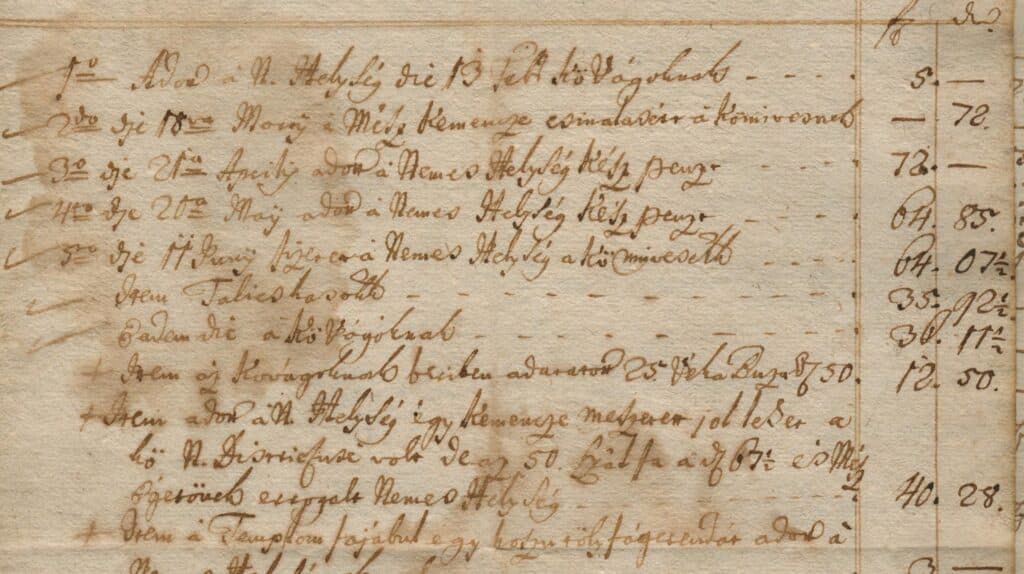 fl dr
1o Adott á N. Helység die 13 febr Kö Vágoknak 5. —
2do die 18va Marty á Mész Kemencze csinalásért á Kömivesnek — 72.
3o die 21a Aprilis adott á Nemes Helység Kész penzt 72. —
4to die 20a Maÿ adott á Nemes Helység Kész penzt 64. 85.
5to die 11 Juny fizetet á Nemes Helység a Kö miveseknek 64. 07½
Item Talicskasoknak 35. 92½
Eadem die a Kö Vágoknak 36. 11½
+ Item az Kovágoknak berében adatatott 25 Véka Buza 50. 12. 50.
+ Item adott á N. Helység egy Kemencze meszetet jol lehet a
kö N. volt de az 50. fa a 67½ és Mész
Égetövel Nemes Helység 40. 28.
+ Item á Templom fajábul egy gerendát adott á
N. Helység 3 —